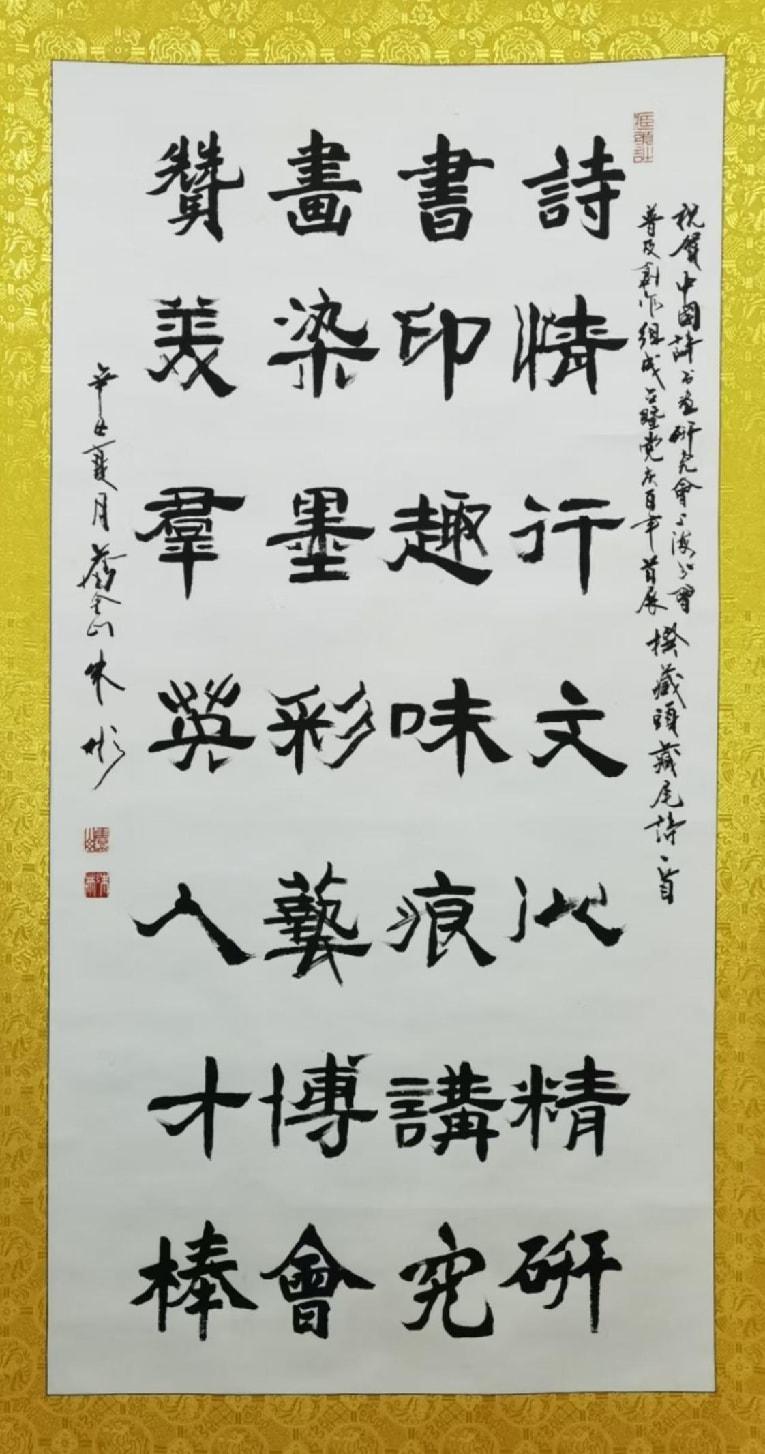 祝賀中國詩书画研究會上海书習
普及創作组成立暨党庆百年首展撰藏頭藏尾詩一首
詩情行文沁精研
書印趣味痕講究
畫染墨彩藝博會
贊美羣英人才棒
辛丑夏月 金山朱彬